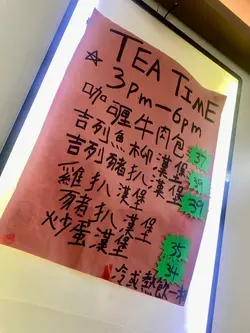 TEA TIME
☆ 3pm-6pm
咖喱牛肉包 37
吉列魚柳漢堡 39
吉列豬扒漢堡 39
雞扒漢堡
豬扒漢堡 35
炒蛋漢堡 34
冷或熱飲一杯